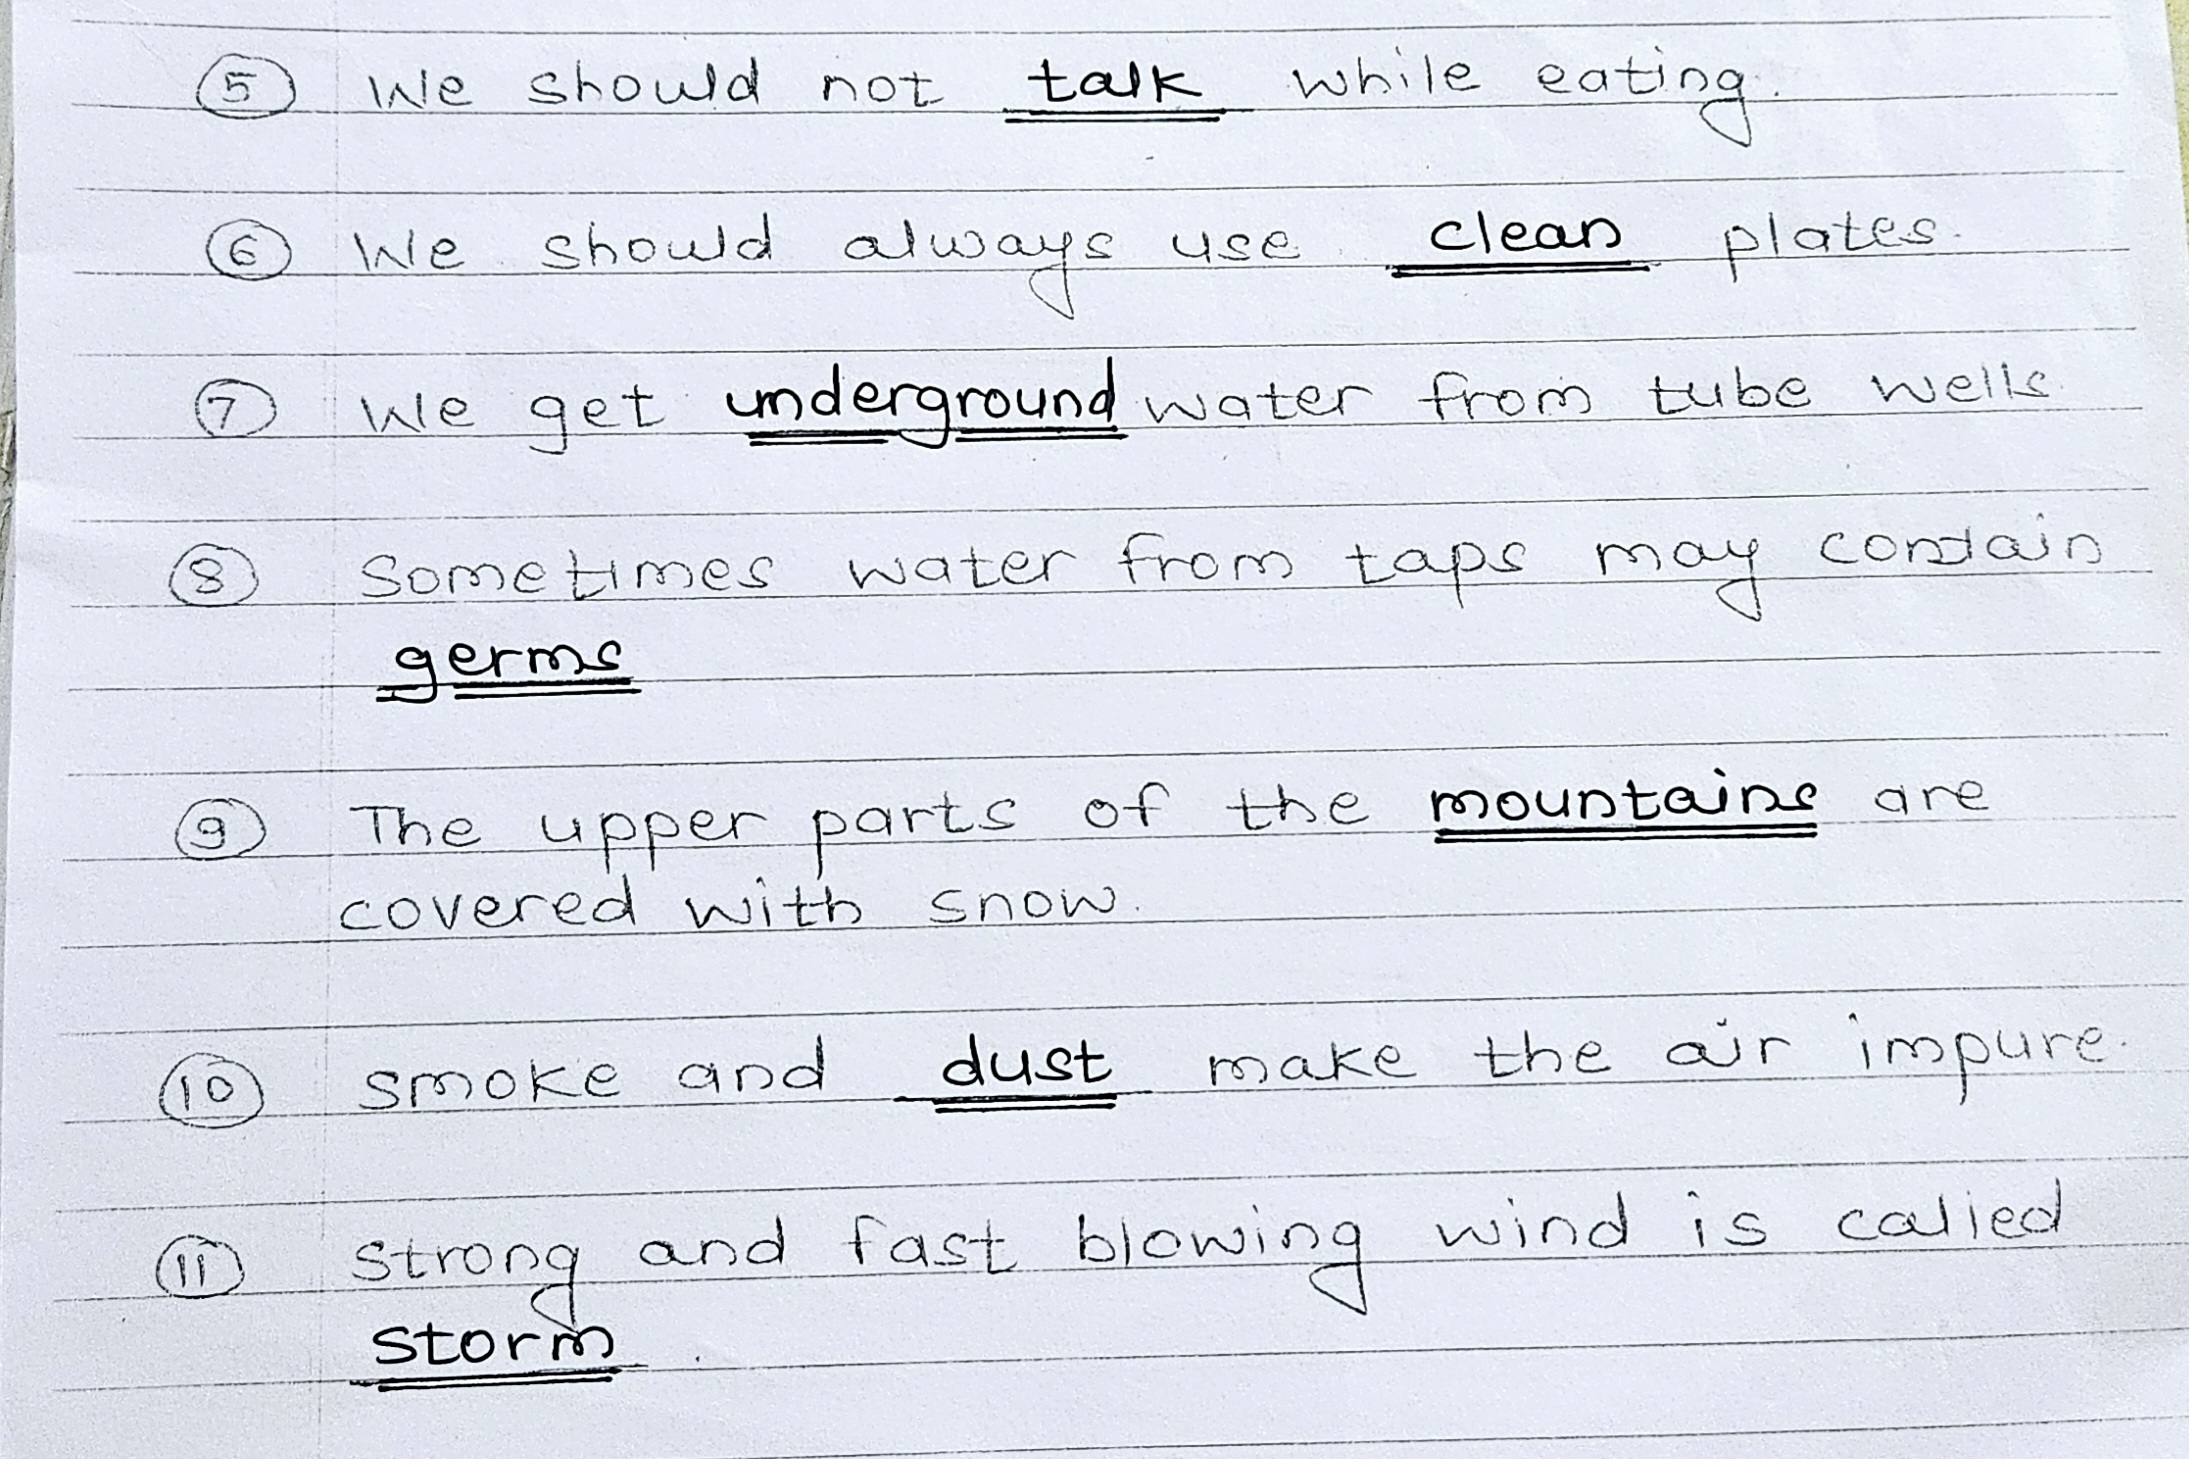 5 We should not talk while eating.
6 We should always use clean plates.
7 We get underground water from tube wells
8 Sometimes water from taps may contain
germs
9 The upper parts of the mountains are
covered with snow.
10 smoke and dust make the air impure.
11 strong and fast blowing wind is called
storm.